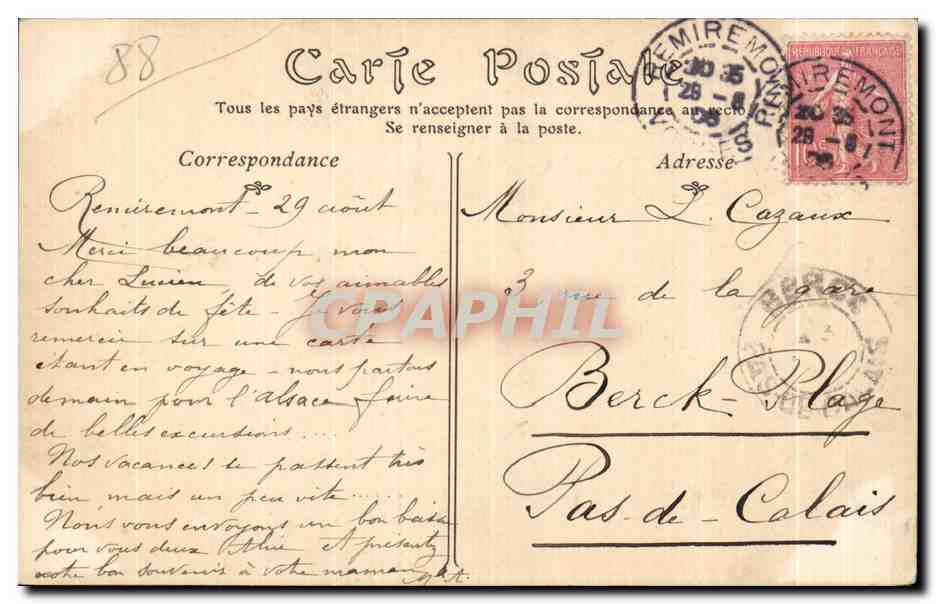 88
Carte Postale
Tous les pays étrangers n'acceptent pas la correspondance au recto
Se renseigner à la poste.
Correspondance
Adresse
REMIREMONT
REMIREMONT
REPUBLIQUE FRANÇAISE
Remiremont - 29 août
Merci beaucoup, mon
cher Lucien, de vos aimables
souhaits de fête - Je vous
remercie sur une carte
étant en voyage - nous partons
demain pour l'Alsace faire
de belles excursions....
Nos vacances se passent très
bien mais un peu vite......
Nous vous envoyons un bon baiser
pour vous deux Alice et présentez
notre bon souvenir à votre maman
Monsieur L. Cazaux
3 rue de la gare
Berck-Plage
Pas-de-Calais
BERCK
PAS DE CALAIS
CPAPHIL